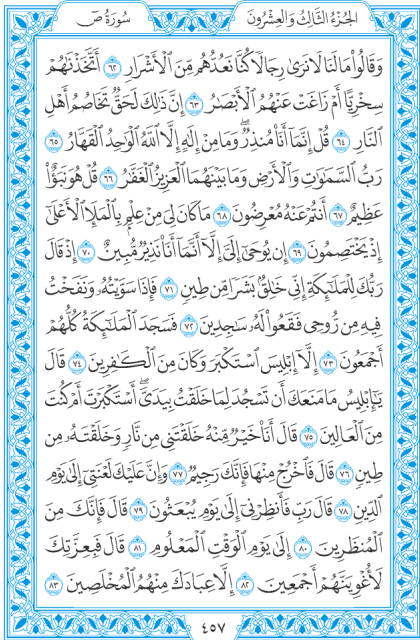 الجُزْءُ الثَّالِثُ وَالعِشْرُونَ سُورَةُ صٓ
وَقَالُوا۟ مَا لَنَا لَا نَرَىٰ رِجَالًا كُنَّا نَعُدُّهُم مِّنَ ٱلْأَشْرَارِ ٦٢ أَتَّخَذْنَٰهُمْ
سِخْرِيًّا أَمْ زَاغَتْ عَنْهُمُ ٱلْأَبْصَٰرُ ٦٣ إِنَّ ذَٰلِكَ لَحَقٌّ تَخَاصُمُ أَهْلِ
ٱلنَّارِ ٦٤ قُلْ إِنَّمَآ أَنَا۠ مُنذِرٌ ۖ وَمَا مِنْ إِلَٰهٍ إِلَّا ٱللَّهُ ٱلْوَٰحِدُ ٱلْقَهَّارُ ٦٥
رَبُّ ٱلسَّمَٰوَٰتِ وَٱلْأَرْضِ وَمَا بَيْنَهُمَا ٱلْعَزِيزُ ٱلْغَفَّٰرُ ٦٦ قُلْ هُوَ نَبَؤٌا۟
عَظِيمٌ ٦٧ أَنتُمْ عَنْهُ مُعْرِضُونَ ٦٨ مَا كَانَ لِىَ مِنْ عِلْمٍۭ بِٱلْمَلَإِ ٱلْأَعْلَىٰٓ
إِذْ يَخْتَصِمُونَ ٦٩ إِن يُوحَىٰٓ إِلَىَّ إِلَّآ أَنَّمَآ أَنَا۠ نَذِيرٌ مُّبِينٌ ٧٠ إِذْ قَالَ
رَبُّكَ لِلْمَلَٰٓئِكَةِ إِنِّى خَٰلِقٌۢ بَشَرًا مِّن طِينٍ ٧١ فَإِذَا سَوَّيْتُهُۥ وَنَفَخْتُ
فِيهِ مِن رُّوحِى فَقَعُوا۟ لَهُۥ سَٰجِدِينَ ٧٢ فَسَجَدَ ٱلْمَلَٰٓئِكَةُ كُلُّهُمْ
أَجْمَعُونَ ٧٣ إِلَّآ إِبْلِيسَ ٱسْتَكْبَرَ وَكَانَ مِنَ ٱلْكَٰفِرِينَ ٧٤ قَالَ
يَٰٓإِبْلِيسُ مَا مَنَعَكَ أَن تَسْجُدَ لِمَا خَلَقْتُ بِيَدَىَّ ۖ أَسْتَكْبَرْتَ أَمْ كُنتَ
مِنَ ٱلْعَالِينَ ٧٥ قَالَ أَنَا۠ خَيْرٌ مِّنْهُ ۖ خَلَقْتَنِى مِن نَّارٍ وَخَلَقْتَهُۥ مِن
طِينٍ ٧٦ قَالَ فَٱخْرُجْ مِنْهَا فَإِنَّكَ رَجِيمٌ ٧٧ وَإِنَّ عَلَيْكَ لَعْنَتِىٓ إِلَىٰ يَوْمِ
ٱلدِّينِ ٧٨ قَالَ رَبِّ فَأَنظِرْنِىٓ إِلَىٰ يَوْمِ يُبْعَثُونَ ٧٩ قَالَ فَإِنَّكَ مِنَ
ٱلْمُنظَرِينَ ٨٠ إِلَىٰ يَوْمِ ٱلْوَقْتِ ٱلْمَعْلُومِ ٨١ قَالَ فَبِعِزَّتِكَ
لَأُغْوِيَنَّهُمْ أَجْمَعِينَ ٨٢ إِلَّا عِبَادَكَ مِنْهُمُ ٱلْمُخْلَصِينَ ٨٣
٤٥٧